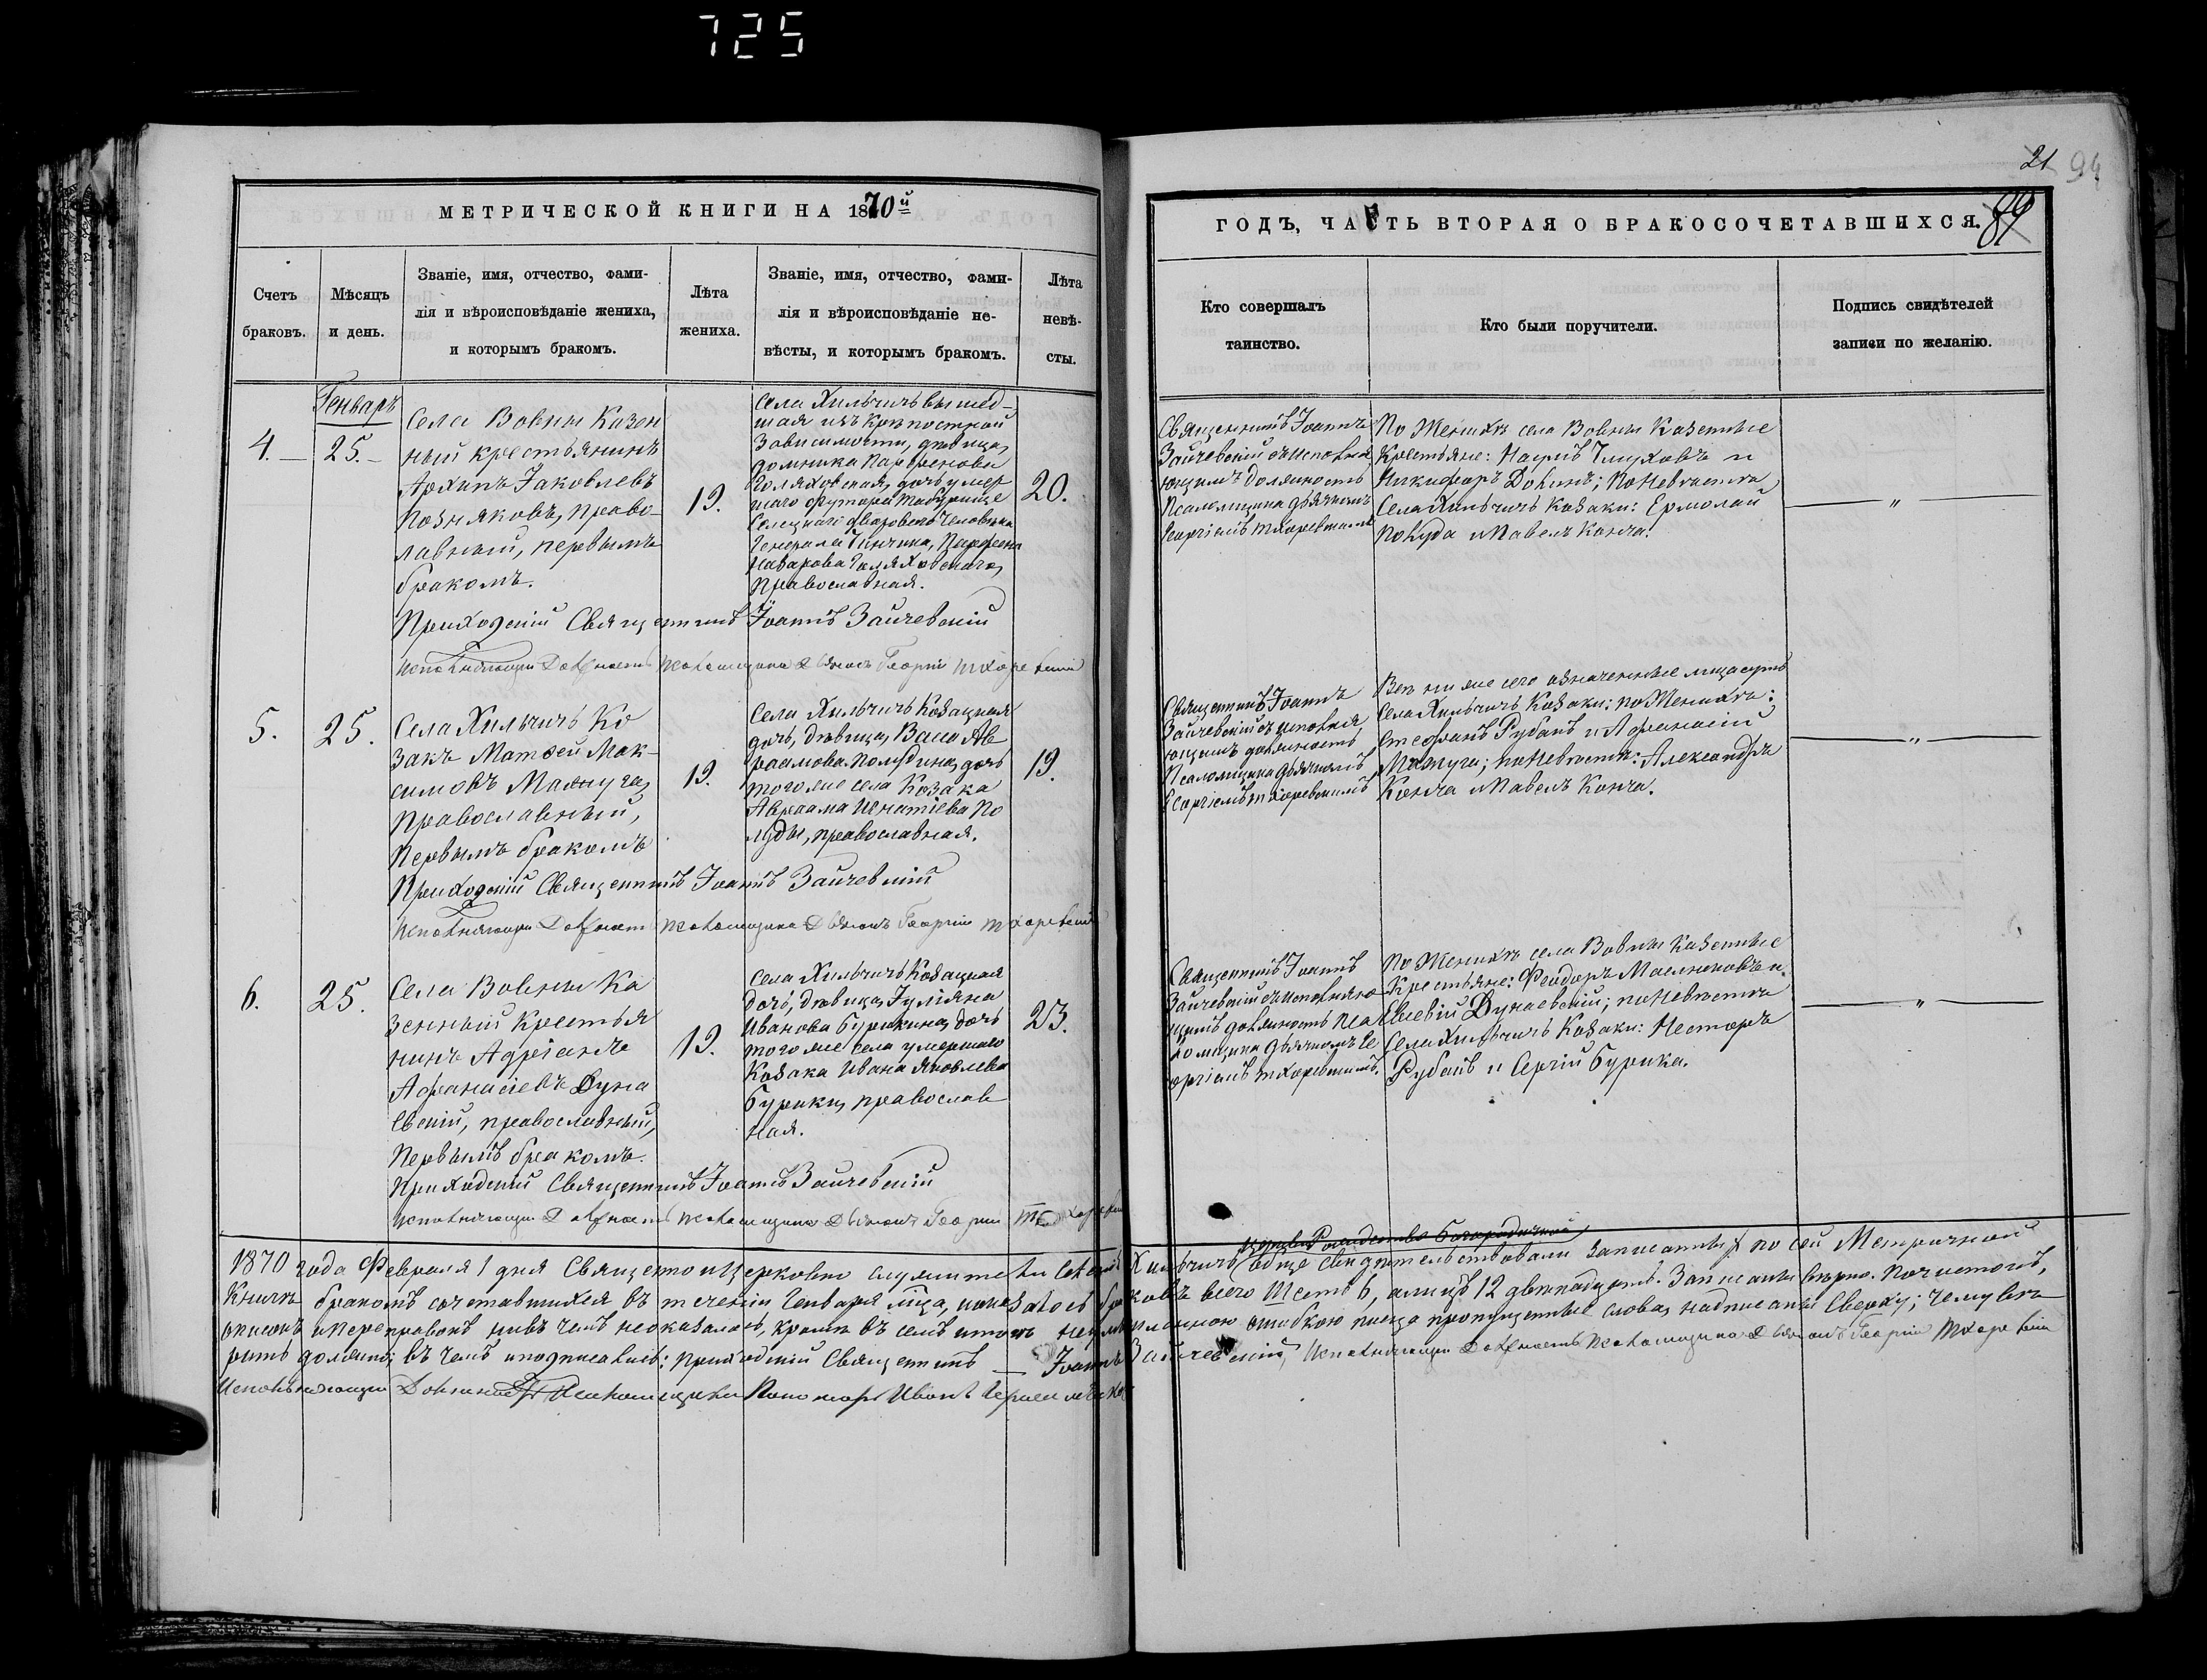 725
21 94
МЕТРИЧЕСКОЙ КНИГИ НА 1870й
ГОДЪ, ЧАСТЬ ВТОРАЯ О БРАКОСОЧЕТАВШИХСЯ.
89
Счетъ
браковъ.
Мѣсяцъ
и день.
Званіе, имя, отчество, фами-
лія и вѣроисповѣданіе жениха,
и которымъ бракомъ.
Лѣта
жениха.
Званіе, имя, отчество, фами-
лія и вѣроисповѣданіе не-
вѣсты, и которымъ бракомъ.
Лѣта
невѣ-
сты.
Кто совершалъ
таинство.
Кто были поручители.
Подпись свидѣтелей
записи по желанію.
Генварь
4.
25.
Села Вовны Казен
ный крестьянинъ
Архипъ Іаковлевъ
Позняковъ, право-
лавный, первымъ
бракомъ.
19.
Села Хильчичъ вышед-
шая изъ крѣпостной
зависимости, дѣвица,
Домника Парфенова
Голяховская, дочь умер
шаго футора
дворового человѣка
Генерала Парфена
Назарова Голяховскаго,
Православная.
20.
Священникъ Іоаннъ
Зайчевскій съ исполня
ющимъ должность
Псаломщика дьячкомъ
Георгіемъ Тхоревскимъ
По Женихѣ села Вовны Казенные
Крестьяне: Наумъ Глуховъ и
Никифоръ ; по Невѣстѣ
Села Хильчичъ Козаки: Ермолай
Покуда и Павелъ Конча.
"
Приходскій Священникъ Іоаннъ Зайчевскій
Исполняющій Должность Псаломщика Дьячокъ Георгій Тхоревскій
5.
25.
Села Хильчичъ Ко
закъ Матѳей Мак-
симовъ Мамуга,
православный,
Первымъ бракомъ
19.
Села Хильчичъ Козацкая
дочь, дѣвица, Васса Ав
раамова дочь
того же села Козака
Авраама Игнатіева По
луды, православная.
19.
Священникъ Іоаннъ
Зайчевскій съ исполня
ющимъ должность
Псаломщика дьячкомъ
Георгіемъ Тхоревскимъ
Всѣ ниже сего означенные лица суть
Села Хильчичъ Козаки: по Женихѣ:
Стефанъ Рубанъ и Афанасій
Мамуга; по Невѣстѣ: Александръ
Конча и Павелъ Конча.
"
Приходскій Священникъ Іоаннъ Зайчевскій
Исполняющій Должность Псаломщика Дьячокъ Георгій Тхоревскій
6.
25.
Села Вовны Ка
зенный Крестья
нинъ Адріанъ
Афанасіевъ Дуна
евскій, православный,
Первымъ бракомъ.
19.
Села Хильчичъ Козацкая
дочь, дѣвица, Іуліяна
Иванова Бурикина, дочь
того же села умершаго
Козака Ивана Яковлева
Бурики, православ
ная.
23.
Священникъ Іоаннъ
Зайчевскій съ исполняю
щимъ должность Пса
ломщика дьячкомъ Ге
оргіемъ Тхоревскимъ.
По Женихѣ села Вовны Казенные
Крестьяне: Феодоръ Маслюковъ и
Евсевій Дунаевскій; по Невѣстѣ
Села Хильчичъ Козаки: Несторъ
Рубанъ и Сергій Бурика.
"
Приходскій Священникъ Іоаннъ Зайчевскій
Исполняющій Должность Псаломщика Дьячокъ Георгій Тхоревскій
церкви Рождество Богородичной
1870 года Февраля 1 дня Священно и Церковно служители Села Хильчичъ обще свидѣтельствовали записанныхъ по сей Метричной
Книгѣ бракомъ сочетавшихся въ теченіи Генваря мѣца, оказалось браковъ всего Шесть 6, а лицъ 12 двѣнадцать. Записаны вѣрно. Почистокъ,
описокъ и переправокъ ни въ чемъ не оказалось, кромѣ въ семъ итогѣ ошибкою писца пропущенные слова, надписаны Сверху; чему вѣ
рить должно; въ чемъ и подписались: Приходскій Священникъ Іоаннъ Зайчевскій, Исполняющій Должность Псаломщика Дьячокъ Георгій Тхоревскій
Исполняющій Должность Псаломщика Пономарь Иванъ